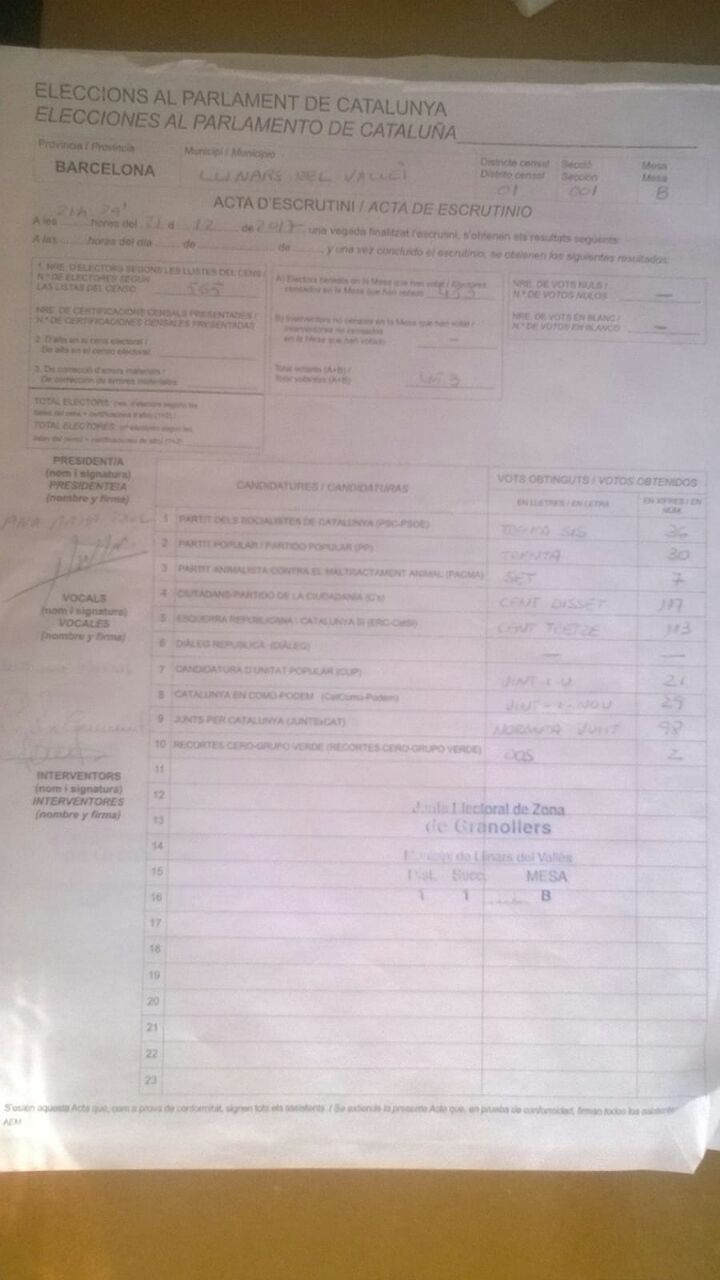 ELECCIONS AL PARLAMENT DE CATALUNYA
ELECCIONES AL PARLAMENTO DE CATALUÑA
Província / Provincia
Municipi / Municipio
Districte censal Secció Mesa
Distrito censal Sección Mesa
BARCELONA LLINARS DEL VALLÈS 01 001 B
ACTA D'ESCRUTINI / ACTA DE ESCRUTINIO
A les ... hores del 21 d 12 de 2017 una vegada finalitzat l'escrutini, s'obtenen els resultats següents:
A las ... horas del día ... de ... de ... y una vez concluido el escrutinio, se obtienen los siguientes resultados:
1. NRE. D'ELECTORS SEGONS LES LLISTES DEL CENS /
N.º DE ELECTORES SEGÚN
LAS LISTAS DEL CENSO 565
NRE. DE CERTIFICACIONS CENSALS PRESENTADES /
N.º DE CERTIFICACIONES CENSALES PRESENTADAS
2. D'alta en el cens electoral /
De alta en el censo electoral
3. De correcció d'errors materials /
De corrección de errores materiales
TOTAL ELECTORS:
TOTAL ELECTORES:
A) Electors censats en la Mesa que han votat / Electores
censados en la Mesa que han votado 453
B) Interventors no censats en la Mesa que han votat /
Interventores no censados
en la Mesa que han votado —
Total votants (A+B) /
Total votantes (A+B) 453
NRE. DE VOTS NULS /
N.º DE VOTOS NULOS —
NRE. DE VOTS EN BLANC /
N.º DE VOTOS EN BLANCO —
PRESIDENT/A
(nom i signatura)
PRESIDENTE/A
(nombre y firma)
ANA
VOCALS
(nom i signatura)
VOCALES
(nombre y firma)
INTERVENTORS
(nom i signatura)
INTERVENTORES
(nombre y firma)
CANDIDATURES / CANDIDATURAS
VOTS OBTINGUTS / VOTOS OBTENIDOS
EN LLETRES / EN LETRA
EN XIFRES / EN NÚM.
1 PARTIT DELS SOCIALISTES DE CATALUNYA (PSC-PSOE) TRENTA SIS 36
2 PARTIT POPULAR / PARTIDO POPULAR (PP) TRENTA 30
3 PARTIT ANIMALISTA CONTRA EL MALTRACTAMENT ANIMAL (PACMA) SET 7
4 CIUTADANS-PARTIDO DE LA CIUDADANÍA (C's) CENT DISSET 117
5 ESQUERRA REPUBLICANA - CATALUNYA SÍ (ERC-CatSí) CENT TRETZE 113
6 DIÀLEG REPUBLICÀ (DIÀLEG) — —
7 CANDIDATURA D'UNITAT POPULAR (CUP) VINT-I-U 21
8 CATALUNYA EN COMÚ-PODEM (CatComú-Podem) VINT-I-NOU 29
9 JUNTS PER CATALUNYA (JUNTSxCAT) NORANTA VUIT 98
10 RECORTES CERO-GRUPO VERDE (RECORTES CERO-GRUPO VERDE) DOS 2
11
12
13
14
15
16
17
18
19
20
21
22
23
Junta Electoral de Zona
de Granollers
Municipi de Llinars del Vallès
Dist. Secc. MESA
1 1 B
S'estén aquesta Acta que, com a prova de conformitat, signen tots els assistents. / Se extiende la presente Acta que, en prueba de conformidad, firman todos los asistentes
AEM